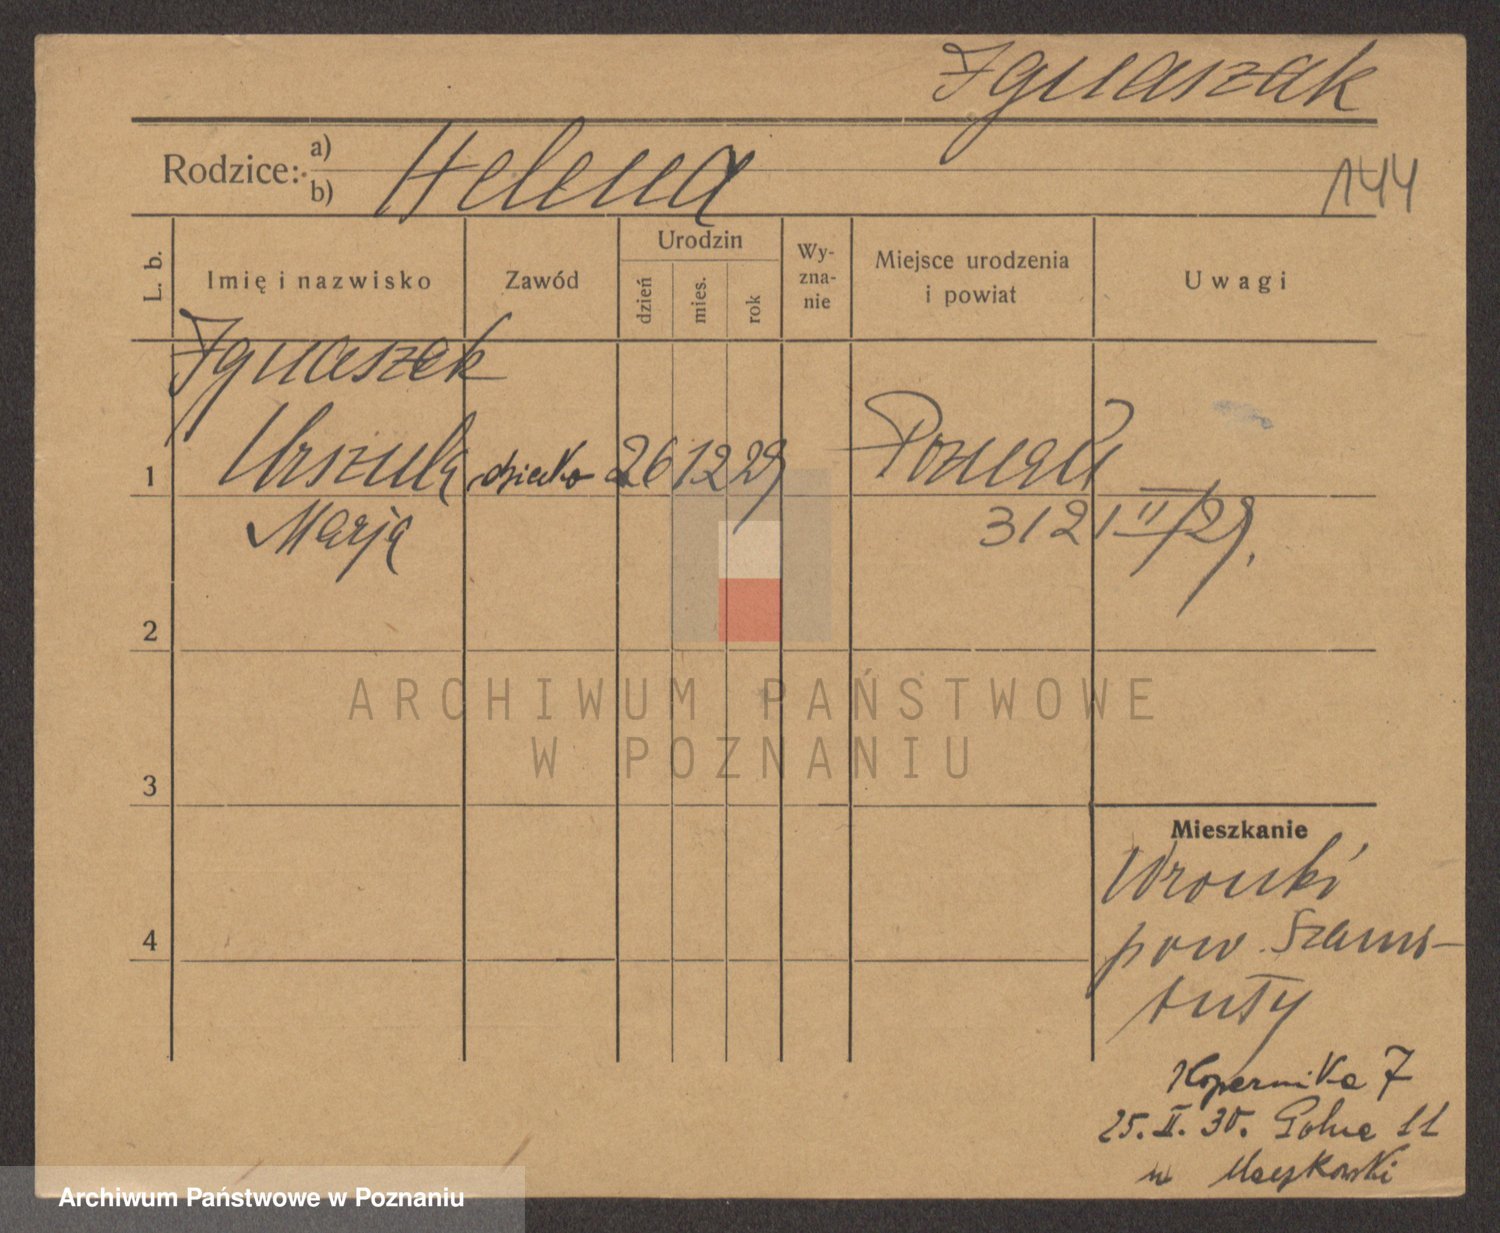 Ignaszak
Rodzice: a)
b)
Helena
144
L. b.
Imię i nazwisko
Zawód
Urodzin
dzień
mies.
rok
Wy-
zna-
nie
Miejsce urodzenia
i powiat
Uwagi
Ignaszak
1 Urszula dziecko 26 12 29 Poznań
Marja
312 II/29.
2
3
4
Mieszkanie
Wronki
pow. Szamo-
tuły
Kopernika 7
25.II.30. Polna 11
ARCHIWUM PAŃSTWOWE
W POZNANIU
Archiwum Państwowe w Poznaniu